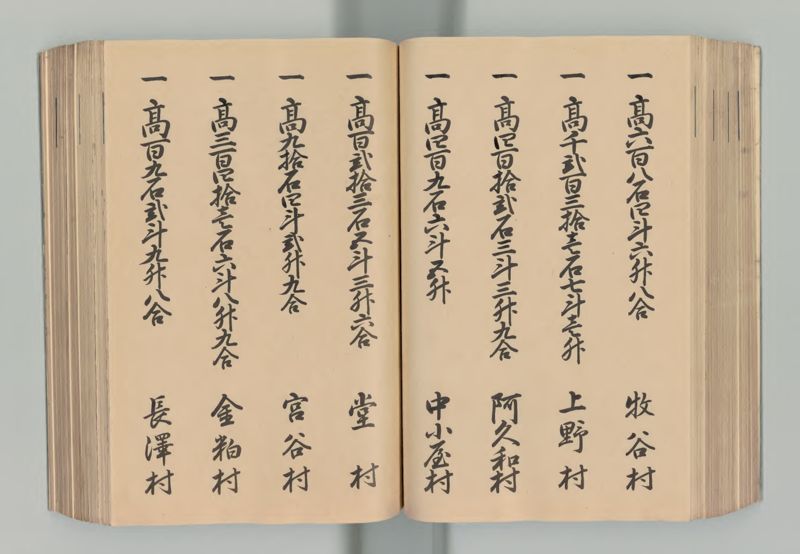 一 高六百八石四斗六升八合 牧谷村
一 高千弐百三拾壱石七斗壱升 上野村
一 高四百拾弐石三斗三升九合 阿久和村
一 高四百九石六斗五升 中小屋村
一 高百弐拾三石五斗三升六合 堂村
一 高九拾石四斗弐升九合 宮谷村
一 高三百四拾壱石六斗八升九合 金粕村
一 高百九石弐斗九升八合 長澤村